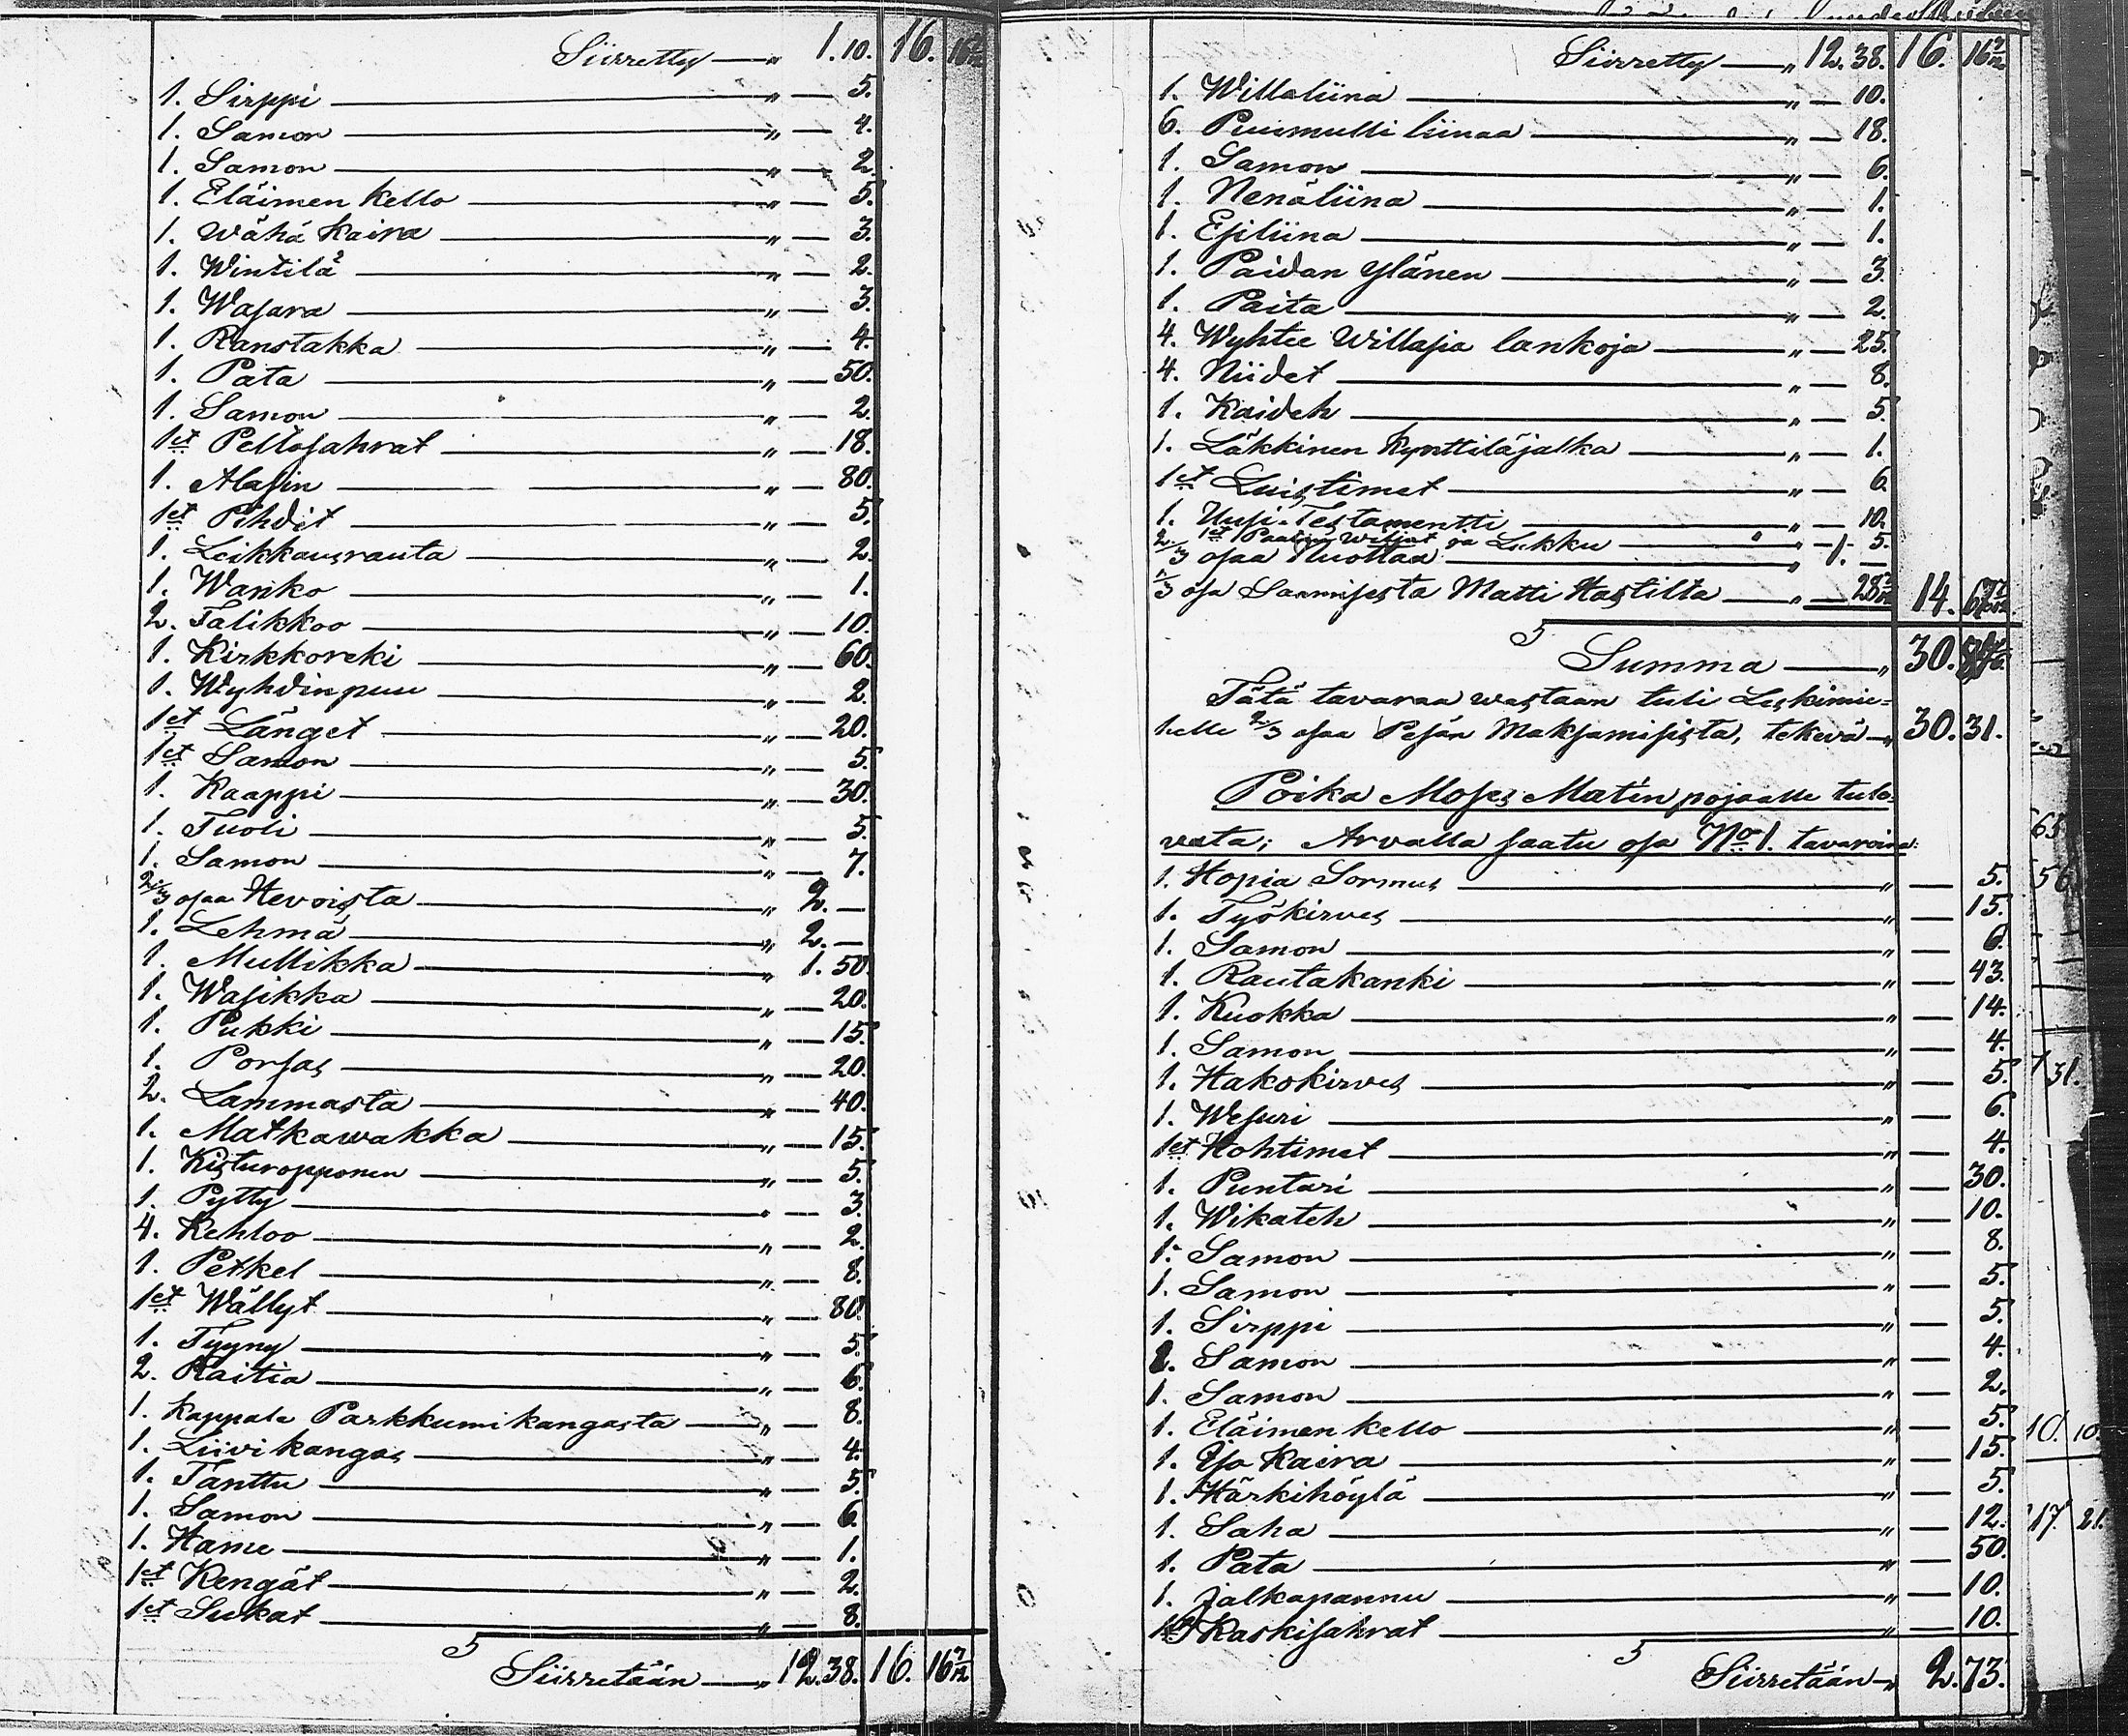 Siirretty — " 1. 10. 16. 16 7/12
1. Sirppi — " — 5.
1. Samon — " — 4.
1. Samon — " — 2.
1. Eläimen kello — " — 5.
1. Wähä kaira — " — 3.
1. Wintilä — " — 2.
1. Wasara — " — 3.
1. Ranstakka — " — 4.
1. Pata — " — 50.
1. Samon — " — 2.
1et Peltosahrat — " — 18.
1. Alasin — " — 80.
1et Pihdit — " — 5.
1. Leikkausrauta — " — 2.
1. Wanko — " — 1.
2. Talikkoo — " — 10.
1. Kirkkoreki — " — 60.
1. Wyhdinpuu — " — 2.
1et Länget — " — 20.
1et Samon — " — 5.
1. Kaappi — " — 30.
1. Tuoli — " — 5.
1. Samon — " — 7.
2/3 osaa Hevoista — " 2. —
1. Lehmä — " 2. —
1. Mullikka — " 1. 50.
1. Wasikka — " — 20.
1. Pukki — " — 15.
1. Porsas — " — 20.
2. Lammasta — " — 40.
1. Matkawakka — " — 15.
1. Kisturopponen — " — 5.
1. Pytty — " — 3.
4. Kehloo — " — 2.
1. Petkel — " — 8.
1et Wällyt — " — 80.
1. Tyyny — " — 5.
2. Raitia — " — 6.
1. kappale Parkkumikangasta — " — 8.
1. Liivikangas — " — 4.
1. Tanttu — " — 5.
1. Samon — " — 6.
1. Hame — " — 1.
1et Kengät — " — 2.
1et Sukat — " — 8.
Siirretään — " 12. 38. 16. 16 7/12
Siirretty — " 12. 38. 16. 16 7/12
1. Willaliina — " — 10.
6. Puumulli liinaa — " — 18.
1. Samon — " — 6.
1. Nenäliina — " — 1.
1. Esiliina — " — 1.
1. Paidan ylänen — " — 3.
1. Paita — " — 2.
4. Wyhtee Willasia lankoja — " — 25.
4. Niidet — " — 8.
1. Kaideh — " — 5.
1. Läkkinen kynttiläjalka — " — 1.
1et Luistimet — " — 6.
1. Uusi-Testamentti — " — 10.
1et ja Lukku — " — 5.
2/3 osaa Nuottaa — " 1. —
1/3 osa Saamisesta Matti Hastilta — " — 14.
Summa — " 30.
Tätä tavaraa wastaan tuli Leskimie=
helle 2/3 osaa Pesän Maksamisista, tekevä — " 30. 31.
Poika Moses Matin pojalle tule=
vata; Arvalla saatu osa No 1. tavaroina:
1. Hopia Sormus — " — 5.
1. Työkirves — " — 15.
1. Samon — " — 6.
1. Rautakanki — " — 43.
1. Kuokka — " — 14.
1. Samon — " — 4.
1. Hakokirves — " — 5.
1. Wesuri — " — 6.
1et Hohtimet — " — 4.
1. Puntari — " — 30.
1. Wikateh — " — 10.
1. Samon — " — 8.
1. Samon — " — 5.
1. Sirppi — " — 5.
1. Samon — " — 4.
1. Samon — " — 2.
1. Eläimen kello — " — 5.
1. Iso Kaira — " — 15.
1. Härkihöylä — " — 5.
1. Saha — " — 12.
1. Pata — " — 50.
1. Jalkapannu — " — 10.
1et Kaskisahrat — " — 10.
Siirretään — " 2. 73.